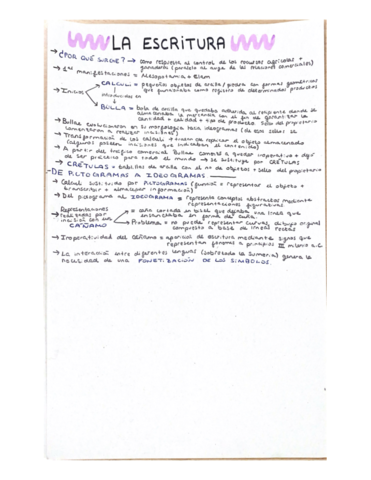 LA ESCRITURA
→ ¿POR QUÉ SURGE? → como respuesta al control de los recursos agrícolas +
ganaderos (paralelo al auge de las relaciones comerciales)
→ 1ª manifestaciones = Mesopotamia + Elam
→ Inicios
CALCULI = pequeños objetos de arcilla/piedra con formas geométricas
que funcionaban como registro de determinados productos
introducidos en
BULLA = bola de arcilla que quedaba adherida al recipiente donde se
almacenaba la mercancía con el fin de garantizar la
cantidad + calidad + tipo de producto. Sello del propietario
→ Bullae evolucionaron en su morfología
comenzaron a realizar incisiones)
→ Transformación de los calculi
(algunos poseían incisiones que indicaban el contenido)
→ A partir del tráfico comercial Bullae comenzó a quedar inoperativo +
de ser preciso para todo el mundo → se sustituye por CRÉTULAS
→ CRÉTULAS = de arcilla con el nº de objetos + sello del propietario
DE PICTOGRAMAS A IDEOGRAMAS
→ Calculi sustituido por PICTOGRAMAS (función = representar el objeto +
transcribir + almacenar información)
→ Del pictograma al IDEOGRAMA = representa conceptos abstractos mediante
representaciones figurativas
→ Representaciones realizadas por incisión con un CÁÑAMO
= caña cortada en bisel que dejaba una línea que
en forma de cuña.
Problema = no puede representar curvas, dibujo original
compuesto a base de líneas rectas
→ Inoperatividad del cáñamo + aparición de escritura mediante signos que
representan fonemas a principios III milenio a.C
→ La interacción entre diferentes lenguas (sobretodo la Sumeria) genera la
necesidad de una FONETIZACIÓN DE LOS SÍMBOLOS.